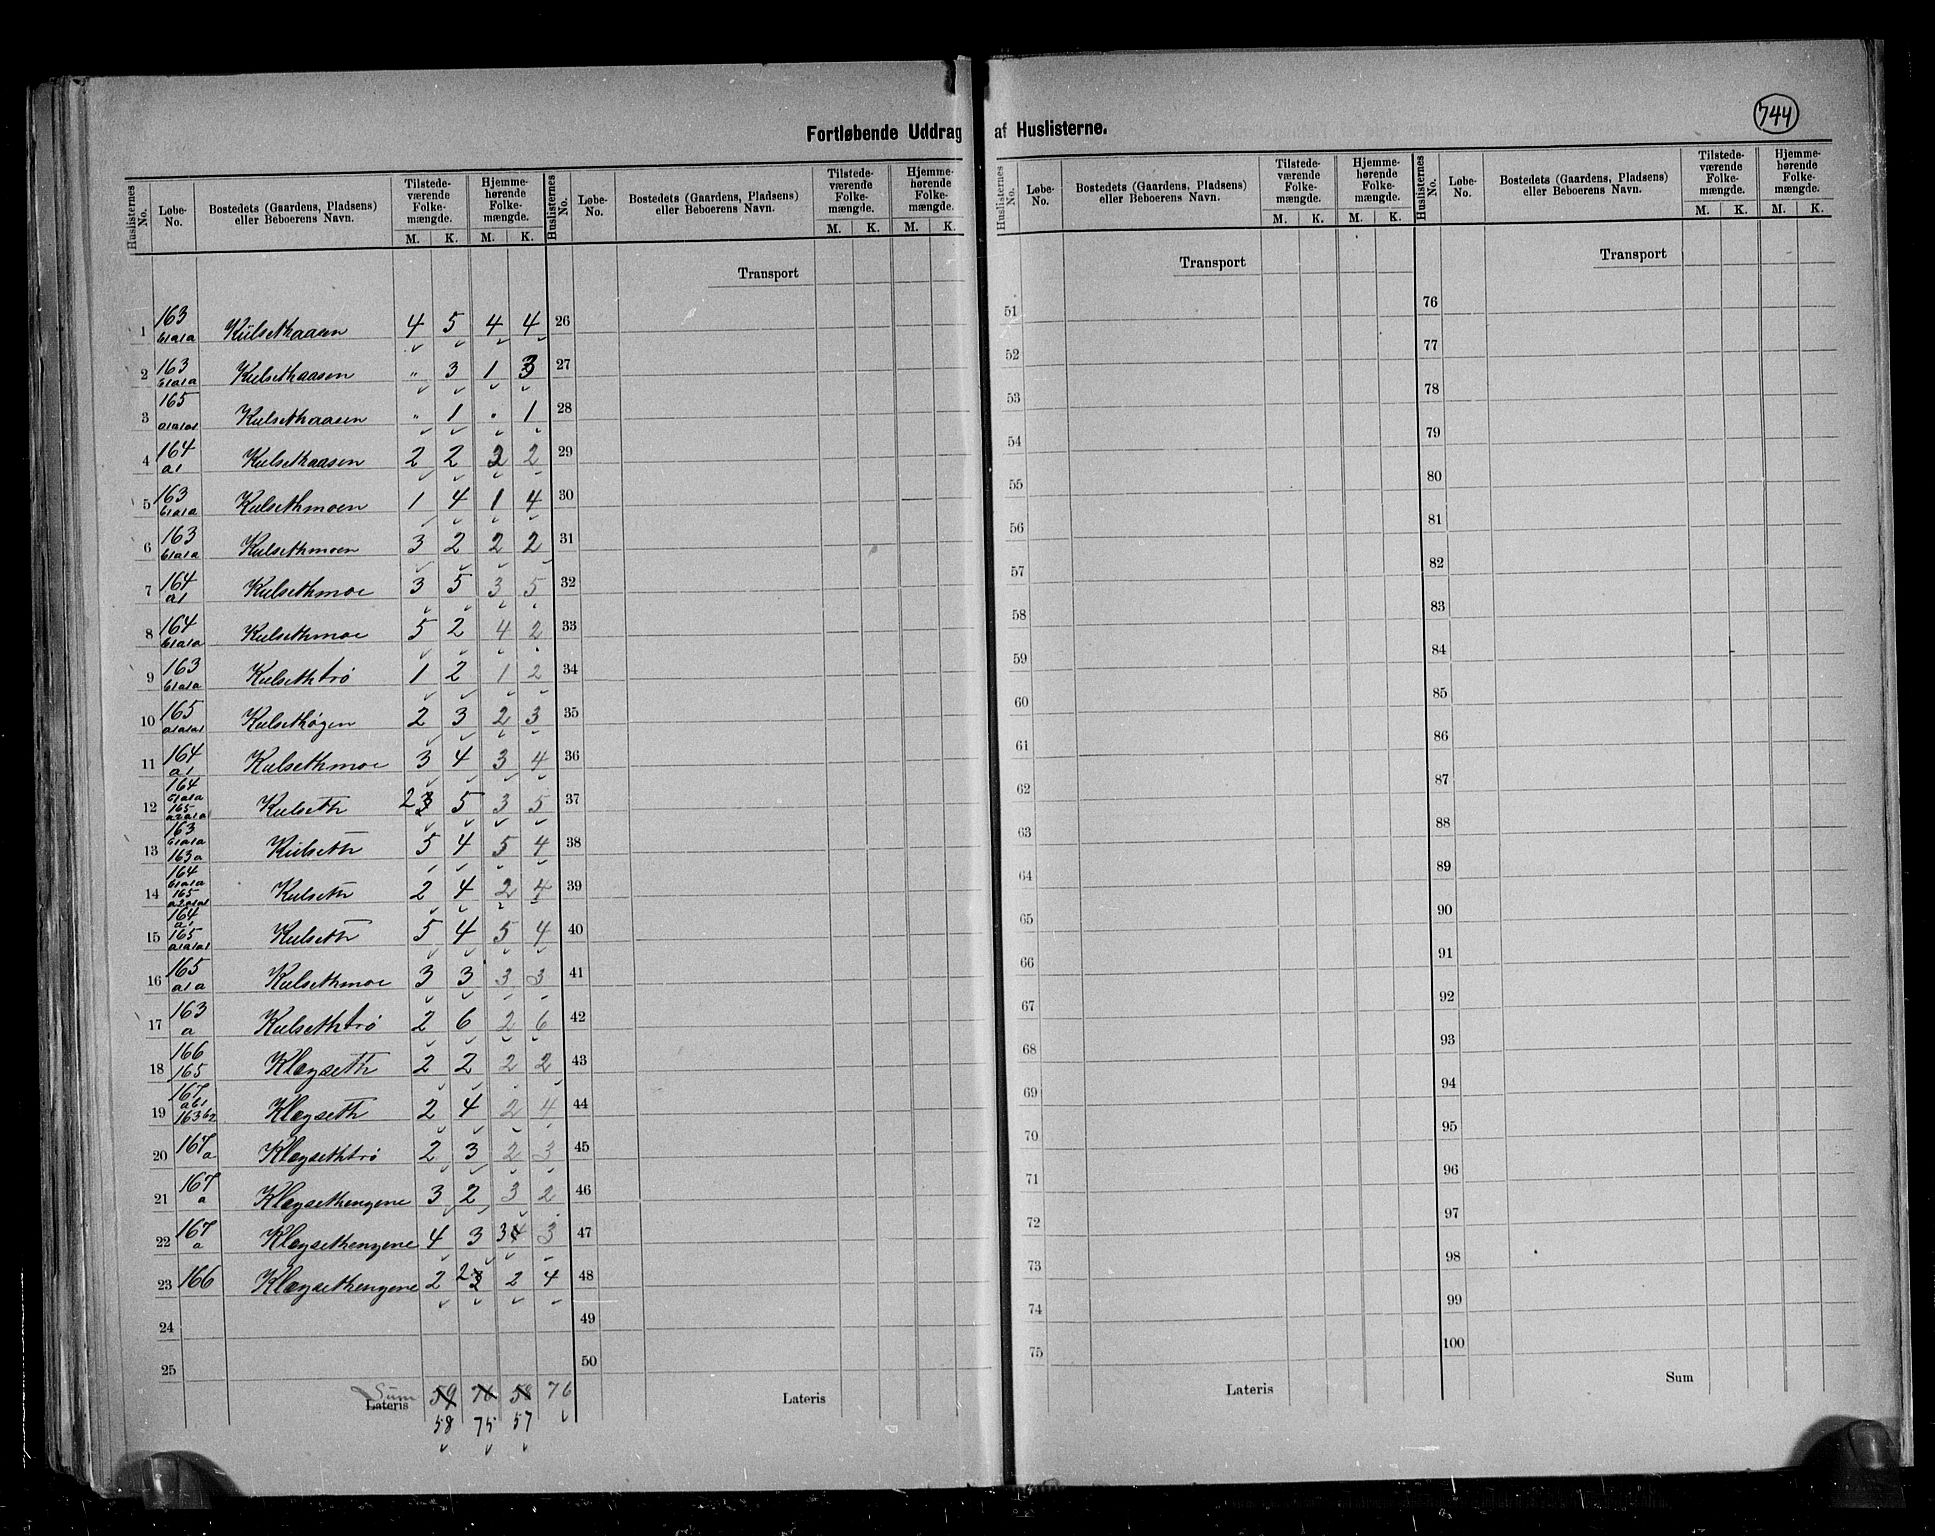 744
Fortløbende Uddrag af Huslisterne.
Huslisternes No. Løbe-No. Bostedets (Gaardens, Pladsens) eller Beboerens Navn. Tilstede-værende Folke-mængde. M. K. Hjemme-hørende Folke-mængde. M. K.
Huslisternes No. Løbe-No. Bostedets (Gaardens, Pladsens) eller Beboerens Navn. Tilstede-værende Folke-mængde. M. K. Hjemme-hørende Folke-mængde. M. K.
Huslisternes No. Løbe-No. Bostedets (Gaardens, Pladsens) eller Beboerens Navn. Tilstede-værende Folke-mængde. M. K. Hjemme-hørende Folke-mængde. M. K.
Huslisternes No. Løbe-No. Bostedets (Gaardens, Pladsens) eller Beboerens Navn. Tilstede-værende Folke-mængde. M. K. Hjemme-hørende Folke-mængde. M. K.
1 163 b1a1a Kulsethaasen 4 5 4 4
2 163 b1a1a Kulsethaasen " 3 1 3
3 165 a1a1a1 Kulsethaasen " 1 " 1
4 164 a1 Kulsethaasen 2 2 2 2
5 163 b1a1a Kulsethmoen 1 4 1 4
6 163 b1a1a Kulsethmoen 3 2 2 2
7 164 a1 Kulsethmoe 3 5 3 5
8 164 b1a1a Kulsethmoe 5 2 4 2
9 163 b1a1a Kulsethtrø 1 2 1 2
10 165 a1a1a1 Kulsethøgen 2 3 2 3
11 164 a1 Kulsethmoe 3 4 3 4
12 164 b1a1a 165 a2a1a Kulseth 2 3 5 3 5
13 163 b1a1a 163a Kulseth 5 4 5 4
14 164 b1a1a 165 a2a1a1 Kulseth 2 4 2 4
15 164 a1 165 a1a1a1 Kulseth 5 4 5 4
16 165 a1a Kulsethmoe 3 3 3 3
17 163 a Kulsethtrø 2 6 2 6
18 166 165 Klægseth 2 2 2 2
19 167 ab1 163b2 Klægseth 2 4 2 4
20 167 a Klægsethtrø 2 3 2 3
21 167 a Klægsethengene 3 2 3 2
22 167 a Klægsethengene 4 3 3 4 3
23 166 Klægsethengene 2 2 3 2 4
24
25
Sum Lateris 59 76 58 76
58 75 57
Transport
26
27
28
29
30
31
32
33
34
35
36
37
38
39
40
41
42
43
44
45
46
47
48
49
50
Lateris
Transport
51
52
53
54
55
56
57
58
59
60
61
62
63
64
65
66
67
68
69
70
71
72
73
74
75
Lateris
Transport
76
77
78
79
80
81
82
83
84
85
86
87
88
89
90
91
92
93
94
95
96
97
98
99
100
Sum